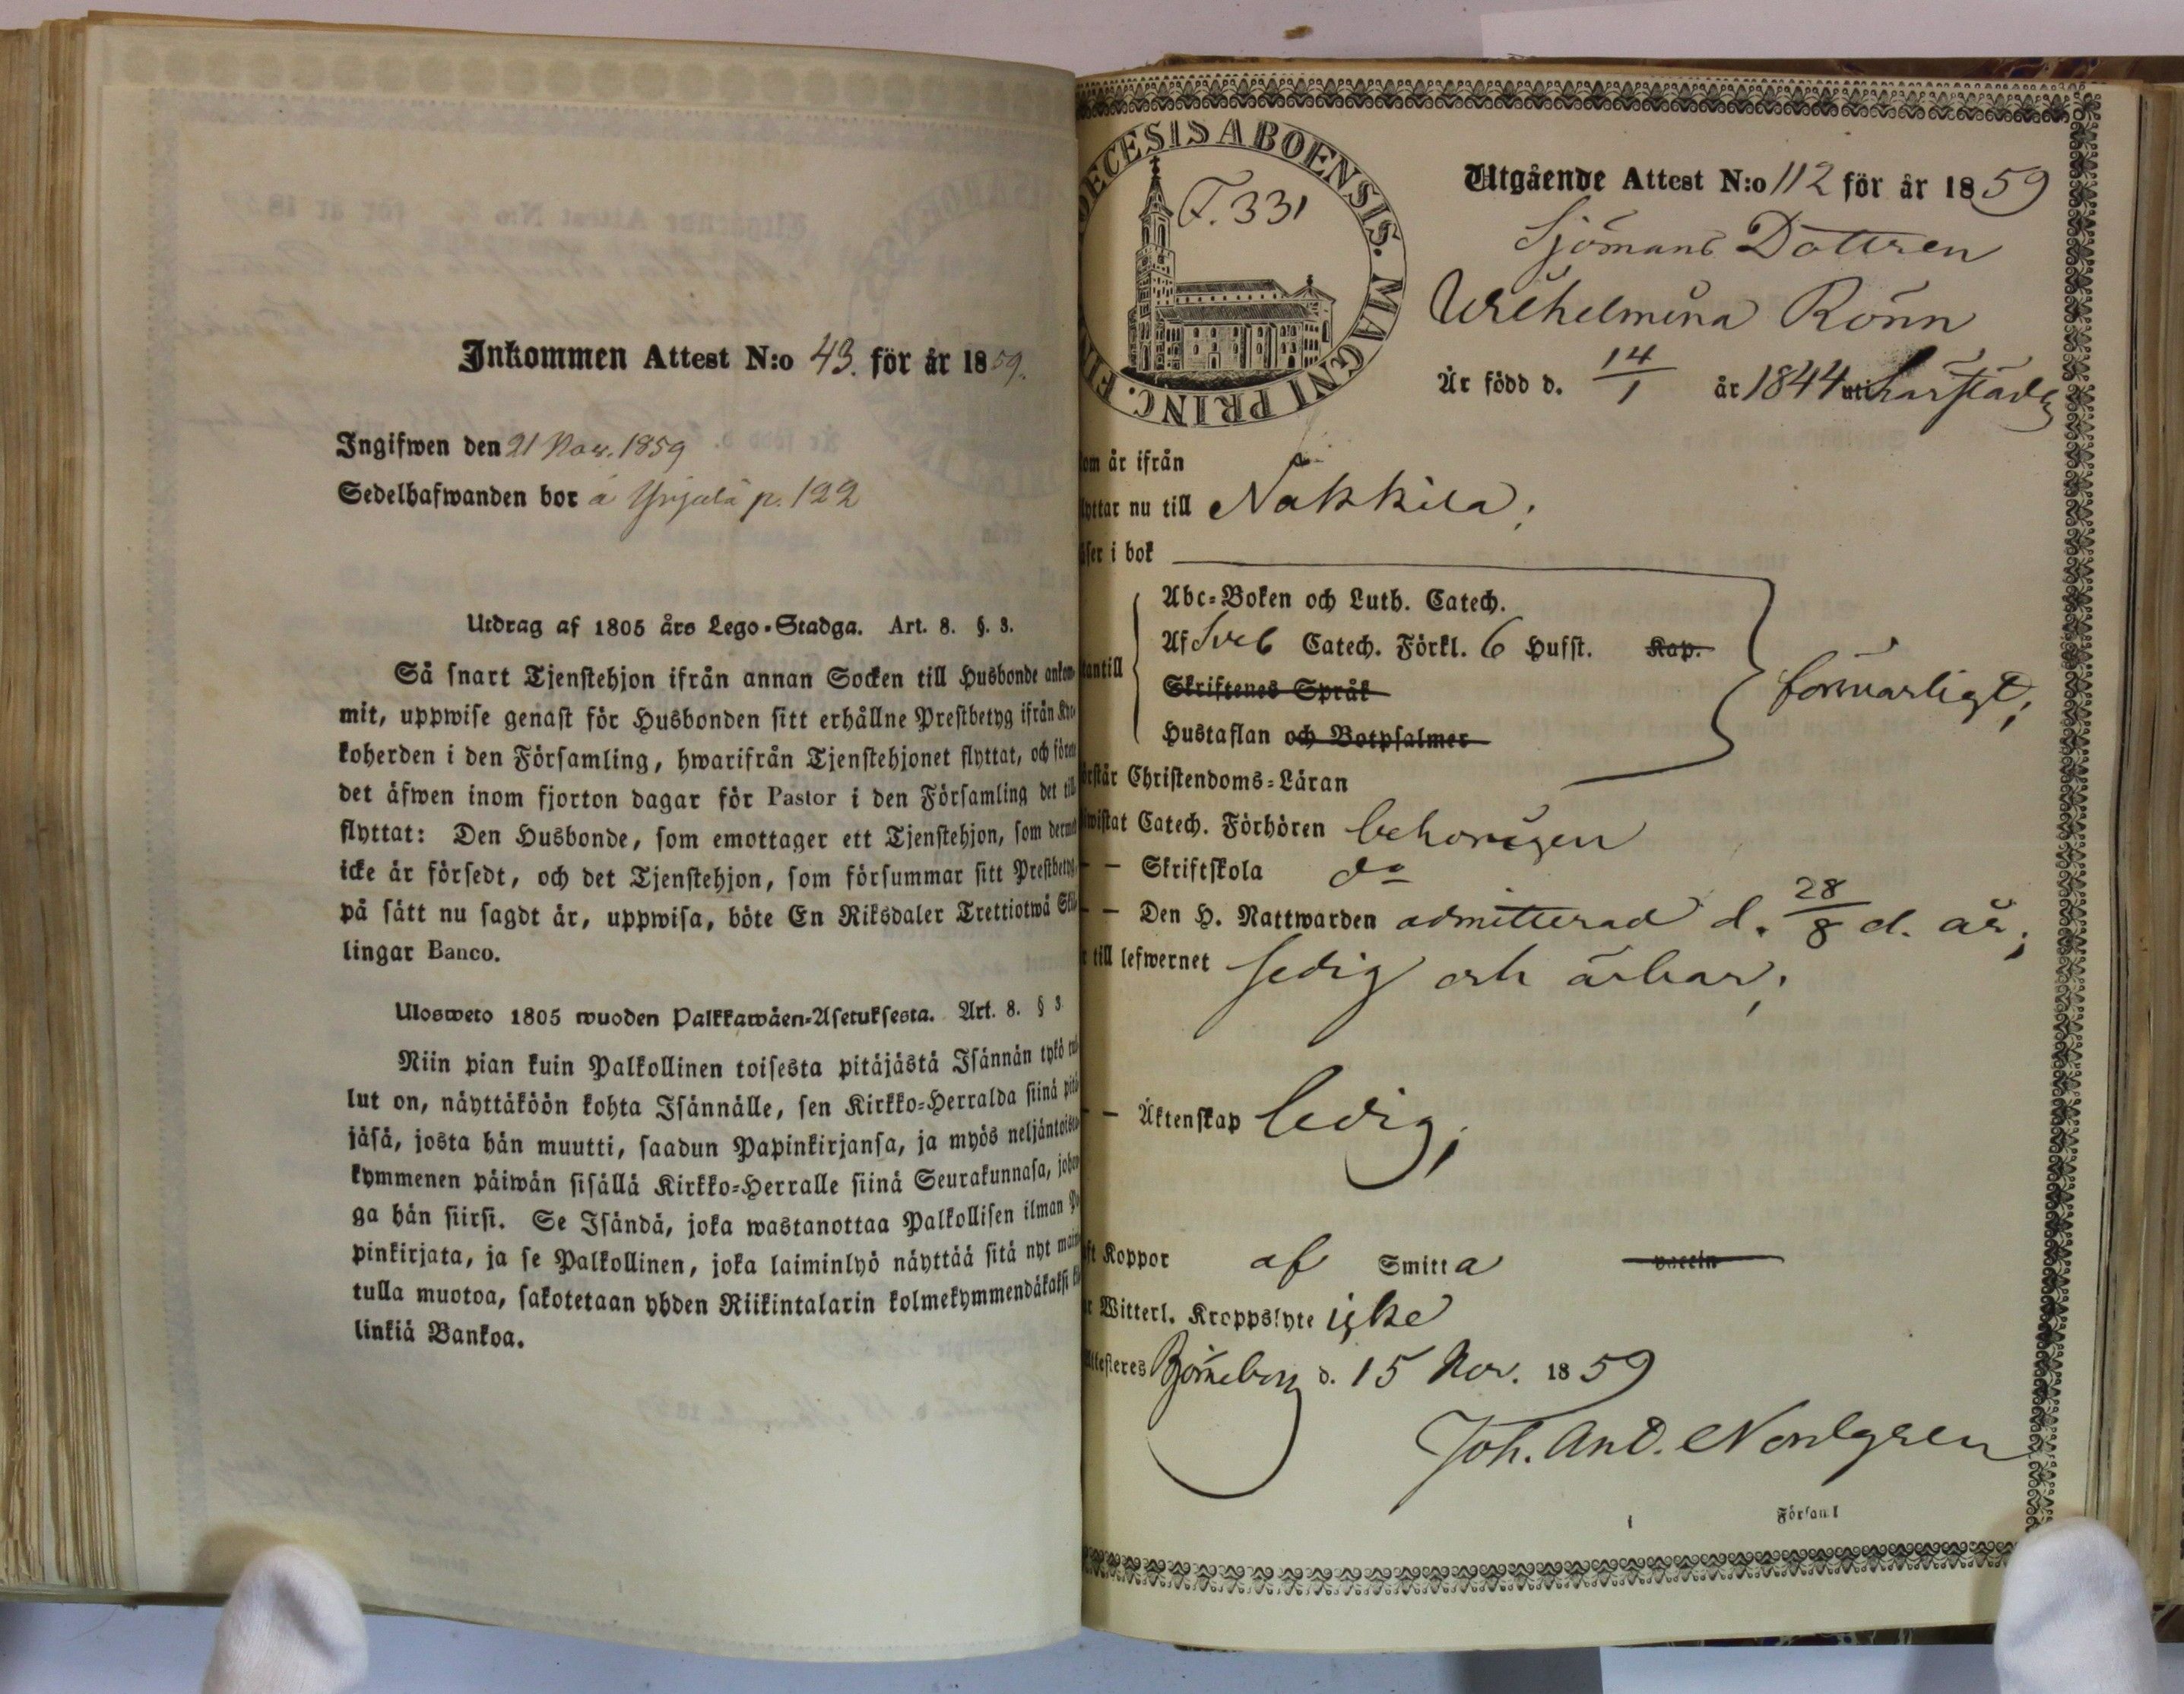 Inkommen Attest N:o 43. för år 1859.
Ingifwen den 21 Nov. 1859
Sedelhafwanden bor å Yrjälä p. 122
Utdrag af 1805 års Lego-Stadga. Art. 8. §. 3.
Så snart Tjenstehjon ifrån annan Socken till Husbonde ankom-
mit, uppwise genast för Husbonden sitt erhållne Prestbetyg ifrån Kyr-
koherden i den Församling, hwarifrån Tjenstehjonet flyttat, och förete
det äfwen inom fjorton dagar för Pastor i den Församling det till
flyttat: Den Husbonde, som emottager ett Tjenstehjon, som dermed
icke är försedt, och det Tjenstehjon, som försummar sitt Prestbetyg,
på sätt nu sagdt är, uppwisa, böte En Riksdaler Trettiotwå Skil-
lingar Banco.
Ulosweto 1805 wuoden Palkkawäen-Asetuksesta. Art. 8. § 3
Niin pian kuin Palkollinen toisesta pitäjästä Isännän tykö tul-
lut on, näyttäköön kohta Isännälle, sen Kirkko-Herralda siinä pitä-
jäsä, josta hän muutti, saadun Papinkirjansa, ja myös neljäntoista-
kymmenen päiwän sisällä Kirkko-Herralle siinä Seurakunnasa, johon-
ga hän siirsi. Se Isändä, joka wastanottaa Palkollisen ilman Pa-
pinkirjata, ja se Palkollinen, joka laiminlyö näyttää sitä nyt maini-
tulla muotoa, sakotetaan yhden Riikintalarin kolmekymmendäkaksi kil-
linkiä Bankoa.
DECESIS ABOENSIS. MAGNI PRINC. FIN
F. 331
Utgående Attest N:o 112 för år 1859
Sjömans Dottren
Wilhelmina Rönn
Är född d. 14/1 år 1844 uti härstädes
om är ifrån
lyttar nu till Nakkila;
äser i bok
Abc-Boken och Luth. Catech.
Af Sveb Catech. Förkl. 6 Hufst. Kap.
utantill
Skriftenes Språk
Hustaflan och Botpsalmer
försvarligt;
örstår Christendoms-Läran
iwistat Catech. Förhören behörigen
— — Skriftskola do
— — Den H. Nattwarden admitterad d. 28/8 d. år;
r till lefwernet sedig och ärbar;
— — Äktenskap ledig;
ft Koppor af Smitta vaccin
r Witterl. Kroppslyte icke
Attesteres Björneborg d. 15 Nov. 1859
Joh. And. Nordgren
Församl